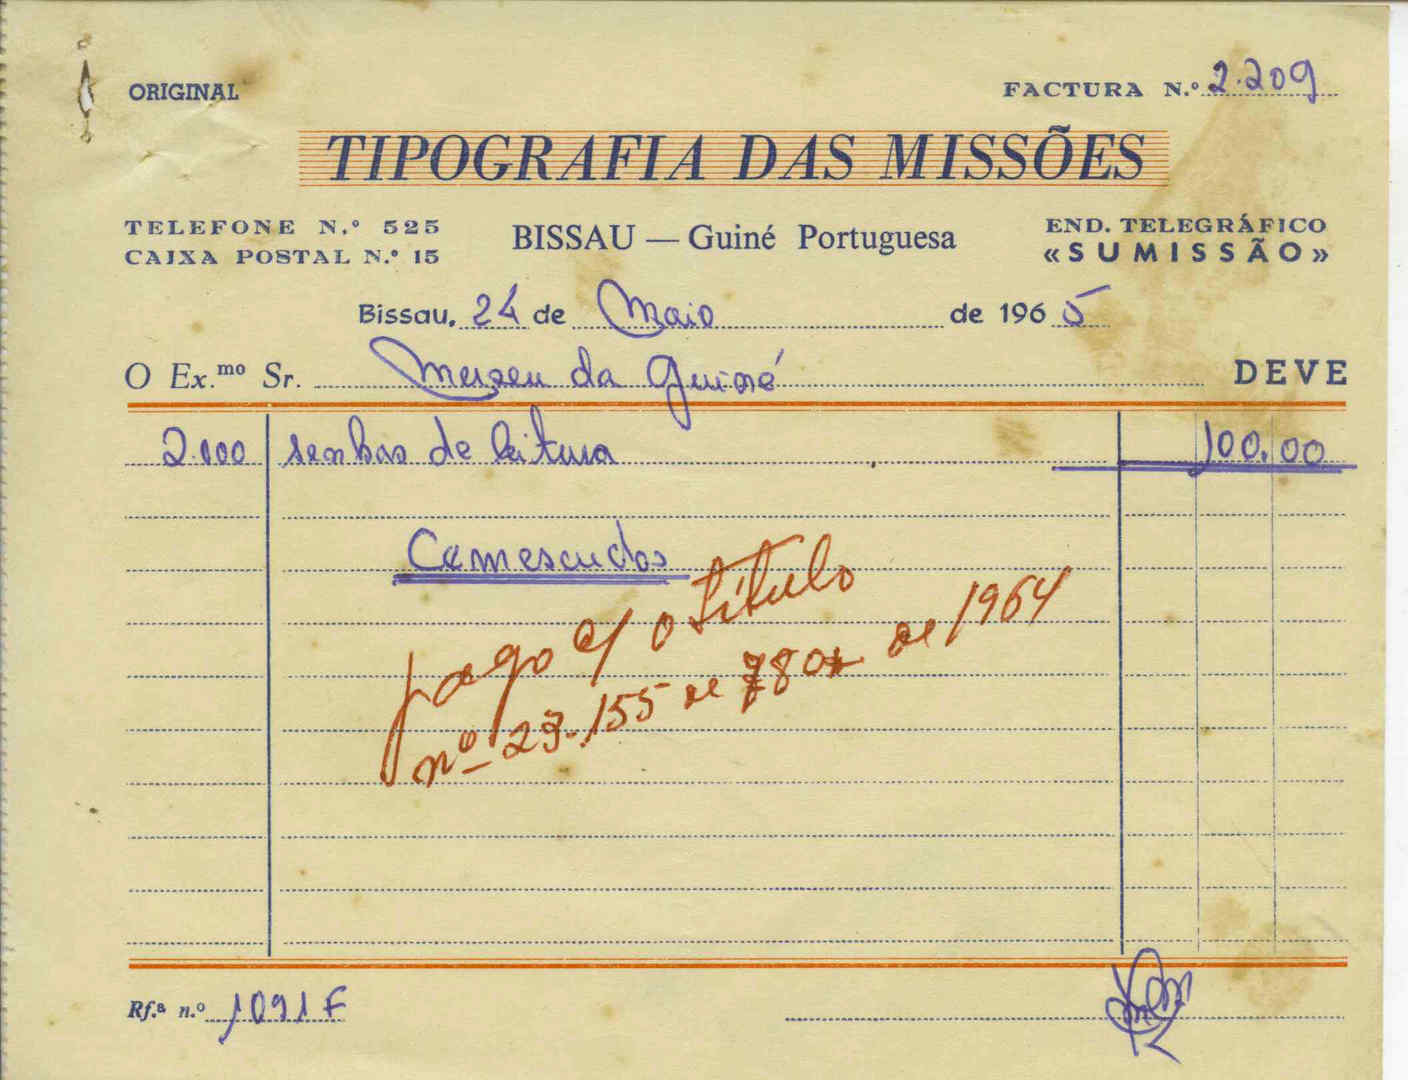 ORIGINAL
FACTURA N.º 2.209
TIPOGRAFIA DAS MISSÕES
TELEFONE N.º 525
CAIXA POSTAL N.º 15
BISSAU — Guiné Portuguesa
END. TELEGRÁFICO
«SUMISSÃO»
Bissau, 24 de Maio de 1965
O Ex.mo Sr. Museu da Guiné DEVE
2.000 senhas de leitura 100.00
Cemescudos
pago c/ o título
nº 23.155 de de 1964
Rf.ª n.º 1091 F